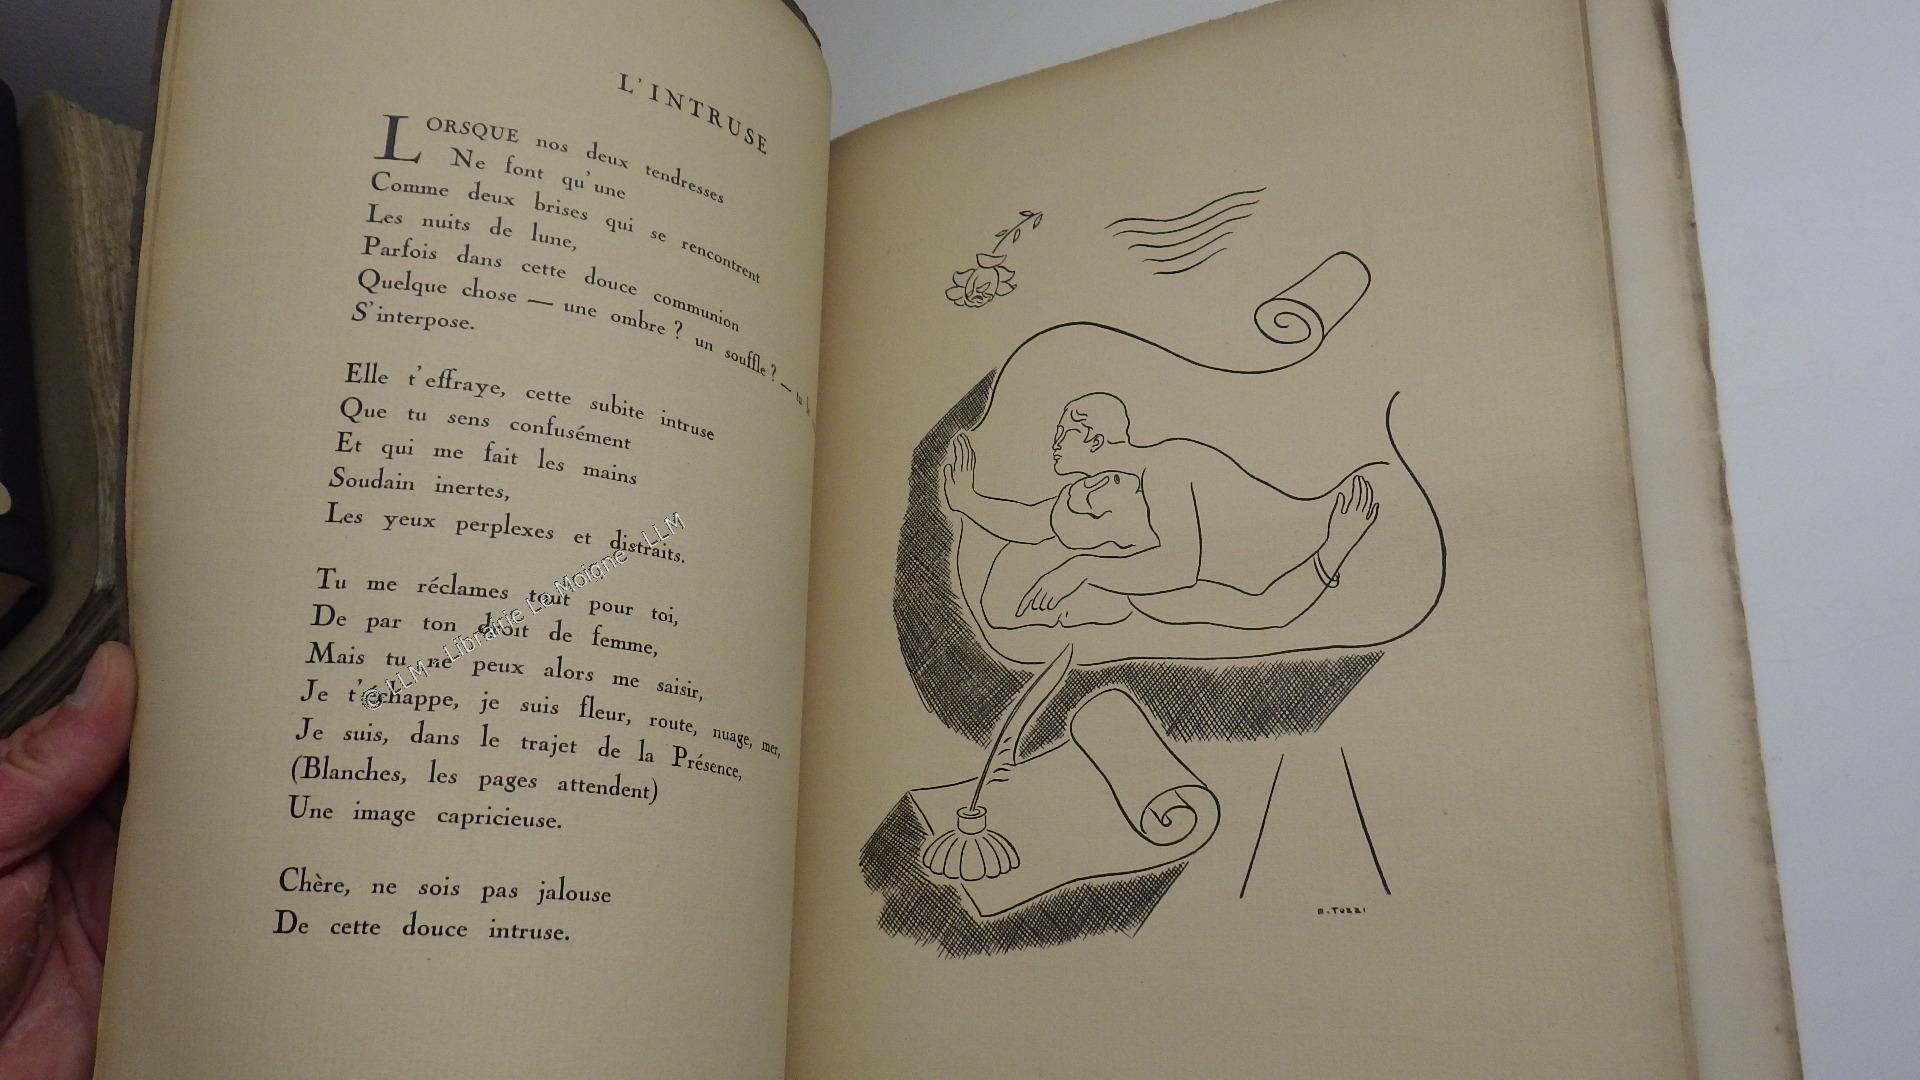 L'INTRUSE
LORSQUE nos deux tendresses
Ne font qu'une
Comme deux brises qui se rencontrent
Les nuits de lune,
Parfois dans cette douce communion
Quelque chose — une ombre ? un souffle ? —
S'interpose.
Elle t'effraye, cette subite intruse
Que tu sens confusément
Et qui me fait les mains
Soudain inertes,
Les yeux perplexes et distraits.
Tu me réclames tout pour toi,
De par ton droit de femme,
Mais tu ne peux alors me saisir,
Je t'échappe, je suis fleur, route, nuage, mer,
Je suis, dans le trajet de la Présence,
(Blanches, les pages attendent)
Une image capricieuse.
Chère, ne sois pas jalouse
De cette douce intruse.
© LLM - Librairie Le Moigne - LLM
R. TOZZI